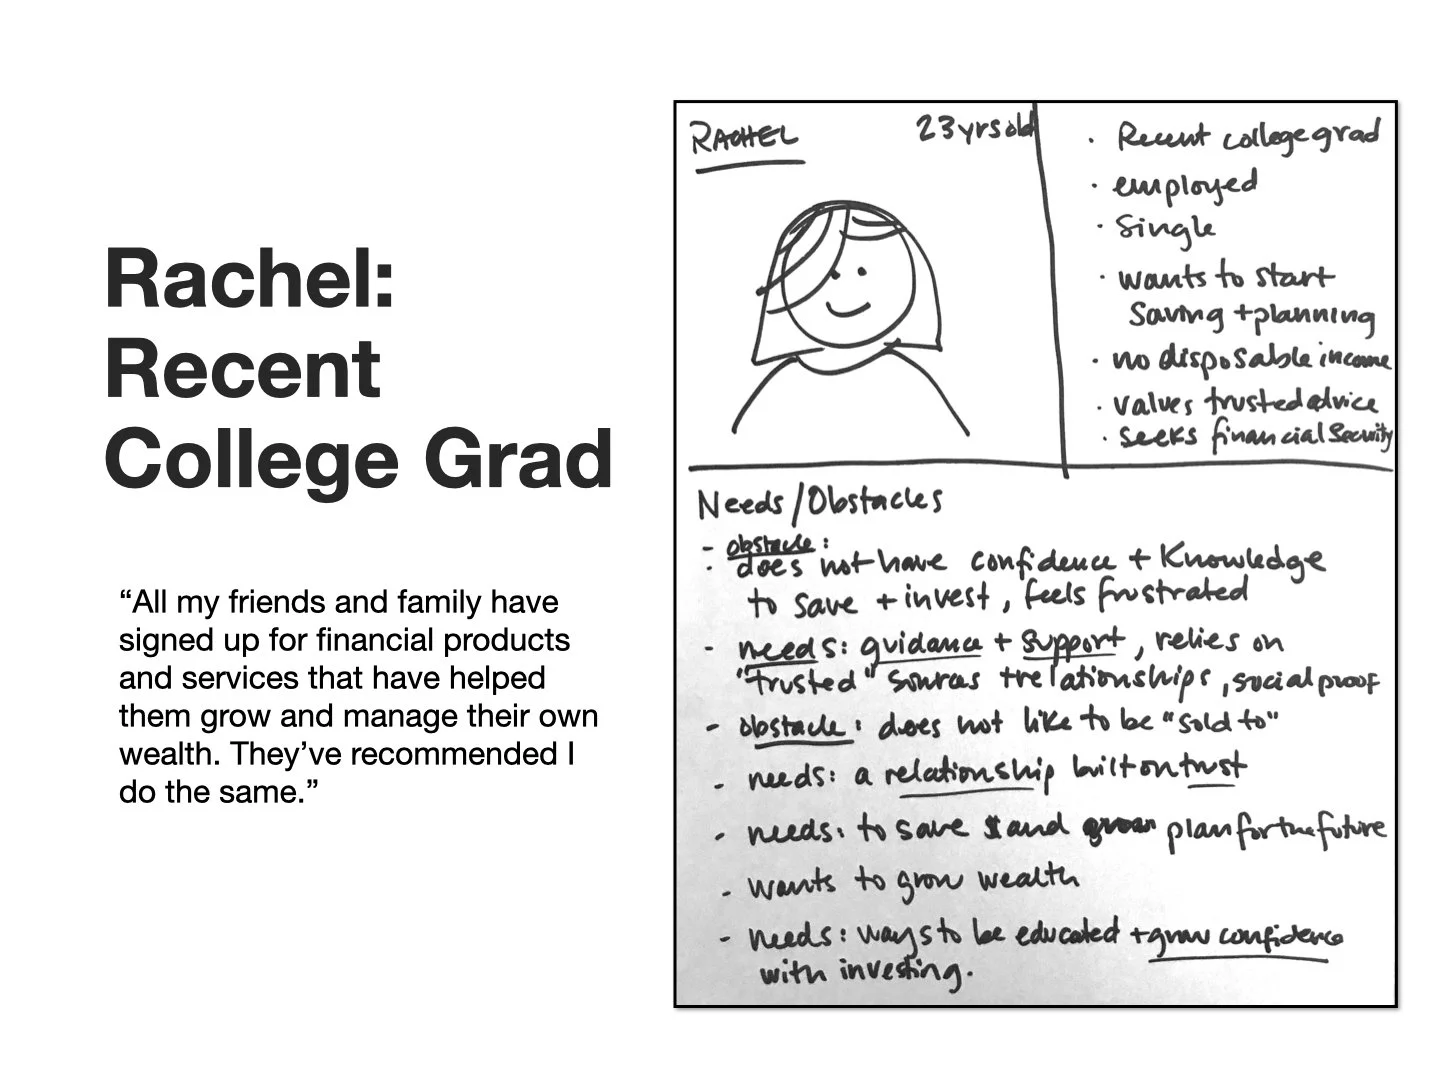 Rachel:
Recent
College Grad
“All my friends and family have
signed up for financial products
and services that have helped
them grow and manage their own
wealth. They’ve recommended I
do the same.”
RACHEL
23 yrs old
· Recent college grad
· employed
· Single
· wants to start
saving + planning
· no disposable income
· values trusted advice
· seeks financial security
Needs/Obstacles
- obstacle:
· does not have confidence + knowledge
to save + invest, feels frustrated
- needs: guidance + support, relies on
"trusted" sources + relationships, social proof
- obstacle: does not like to be "sold to"
- needs: a relationship built on trust
- needs: to save and plan for the future
- wants to grow wealth
- needs: ways to be educated + grow confidence
with investing.